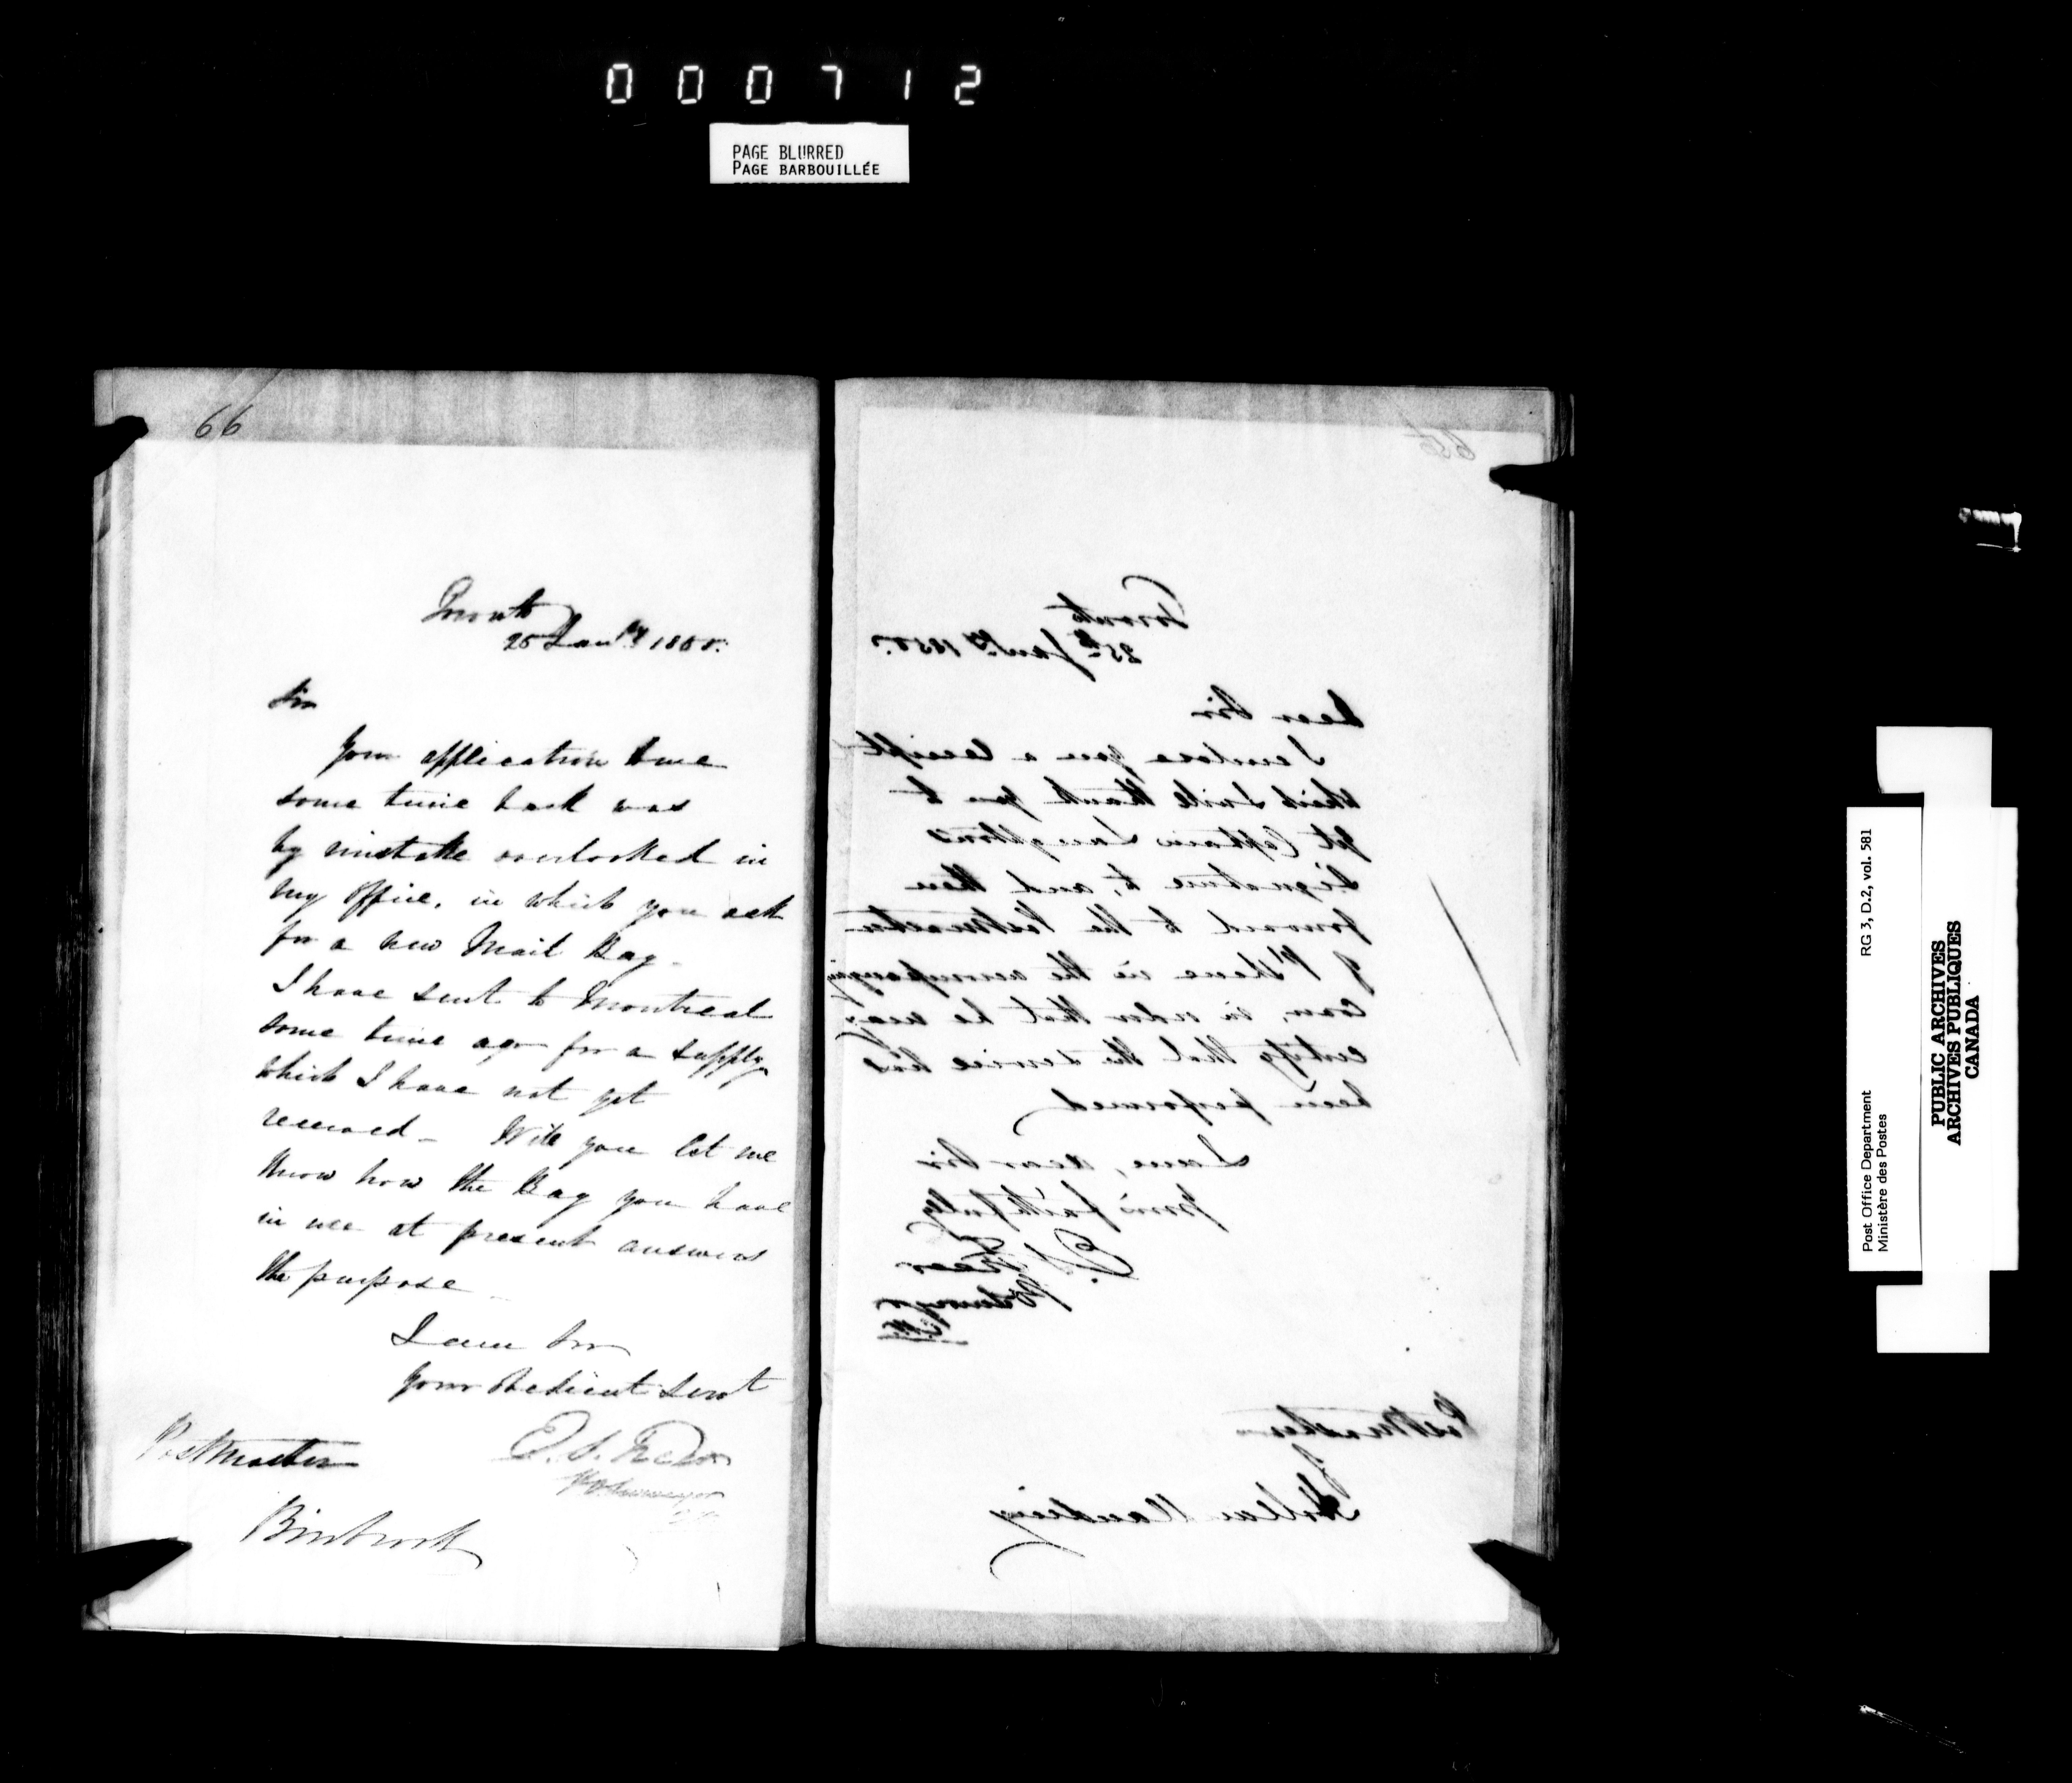 000712
PAGE BLURRED
PAGE BARBOUILLÉE
66
Toronto
25 Jany 1850.
Sir
Your application
some time back was
by mistake overlooked in
my office, in which you ask
for a new Mail Bag.
I have sent to Montreal
some time ago for a supply
which I have not yet
received - Will you let me
know how the Bag you have
in use at present answers
the purpose
I am Sir
Your Obedient Servt
E. S. Freer
P.O. Surveyor
Postmaster
Binbrook
65
Toronto
25th Jany 1850.
Dear Sir
I enclose you a receipt
which I will thank you to
get Captain Laughton's
Signature to, and then
forward to the Postmaster
of Pt in the accompanying
Cover, in order that he may
certify that the service has
been performed
I am, Dear Sir
Yours faithfully
E. S. Freer
P O Surveyor
Postmaster
Holland Landing
RG 3, D.2, vol. 581
Post Office Department
Ministère des Postes
PUBLIC ARCHIVES
ARCHIVES PUBLIQUES
CANADA